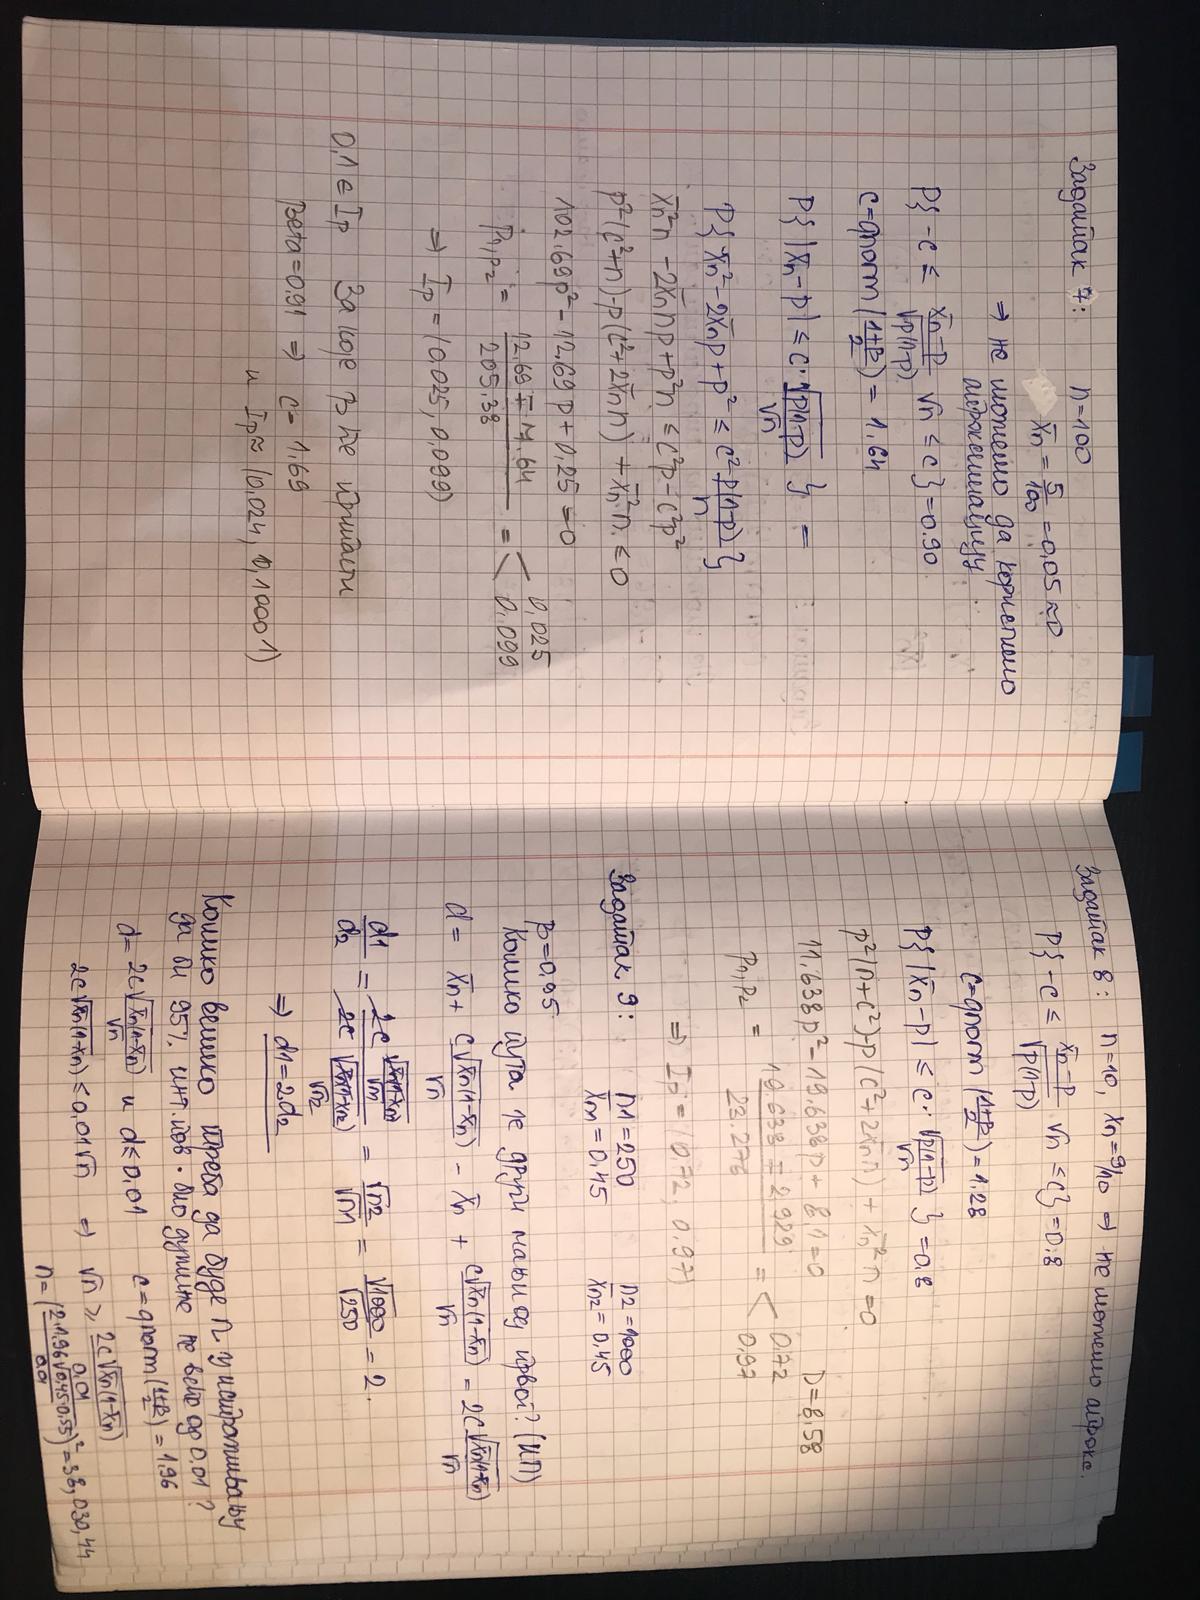 Задатак 7: n=100
x̄n = 5/100 = 0,05 ≈ 0
⇒ не можемо да користимо
апроксимацију
P{ -c ≤ (x̄n-p)/√(p(1-p)) √n ≤ c } = 0.90
c=qnorm((1+β)/2) = 1.64
P{ |x̄n-p| ≤ c·√(p(1-p))/√n } =
P{ x̄n² - 2x̄np + p² ≤ c² p(1-p)/n }
x̄n²n - 2x̄nnp + p²n ≤ c²p - c²p²
p²(c²+n) - p(c²+2x̄nn) + x̄n²n ≤ 0
102,69p² - 12.69p + 0,25 = 0
p1,p2 = (12.69 ∓ 7.64)/205.38 = < 0,025 0,099
⇒ Ip = (0,025, 0,099)
0,1 ∈ Ip За које β ће припасти
beta=0.91 ⇒ c = 1.69
и Ip ≈ (0,024, 0,10001)
Задатак 8: n=10, x̄n=9/10 ⇒ не можемо апрокс.
P{ -c ≤ (x̄n-p)/√(p(1-p)) √n ≤ c } = 0.8
c=qnorm((1+β)/2) = 1.28
P{ |x̄n-p| ≤ c·√(p(1-p))/√n } = 0,8
p²(n+c²) - p(c²+2x̄nn) + x̄n²n = 0
11.638p² - 19.638p + 8,1 = 0 D=8,58
p1,p2 = (19.638 ∓ 2.929)/23.276 = < 0.72 0,97
⇒ Ip = (0.72, 0.97)
Задатак 9: n1=250 n2=1000
x̄n1=0,45 x̄n2=0,45
β=0.95
Колико пута је други мањи од првог? (ИП)
d = x̄n + c√(x̄n(1-x̄n))/√n - x̄n + c√(x̄n(1-x̄n))/√n = 2c√(x̄n(1-x̄n))/√n
d1/d2 = (2c √(x̄n1(1-x̄n1))/√n1)/(2c √(x̄n2(1-x̄n2))/√n2) = √n2/√n1 = √1000/√250 = 2.
⇒ d1=2·d2
Колико велико треба да буде n у испитивању
да би 95% инт. пов. био дужине не веће од 0.01?
d = 2c√(x̄n(1-x̄n))/√n и d≤0,01 c=qnorm((1+β)/2) = 1.96
2c√(x̄n(1-x̄n)) ≤ 0,01√n ⇒ √n ≥ 2c√(x̄n(1-x̄n))/0,01
n = (2·1.96√(0,45·0.55)/0.01)² = 38,030,44